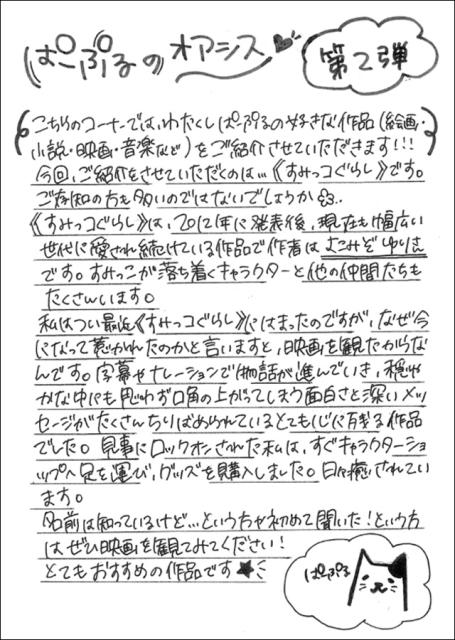 ぱーぷるのオアシス
第2弾
こちらのコーナーでは、わたくしぱーぷるの好きな作品(絵画・
小説・映画・音楽など)をご紹介させていただきます!!!
今回、ご紹介をさせていただくのは…《すみっコぐらし》です。
ご存知の方も多いのではないでしょうか…
《すみっコぐらし》は、2012年に発表後、現在も幅広い
世代に愛され続けている作品で作者はよこみぞゆりさん
です。すみっこが落ち着くキャラクターと他の仲間たちも
たくさんいます。
私はつい最近《すみっコぐらし》にはまったのですが、なぜ今
になって惹かれたのかと言いますと、映画を観たからな
んです。字幕やナレーションで物語が進んでいき、穏や
かな中にも思わず口角の上がってしまう面白さと深いメッ
セージがたくさんちりばめられているとても心に刺さる作品
でした。見事にロックオンされた私は、すぐキャラクターショ
ップへ足を運び、グッズを購入しました。日々癒されてい
ます。
名前は知っているけど…という方や初めて聞いた!という方
はぜひ映画を観てみてください!
とてもおすすめの作品です★
ぱーぷる